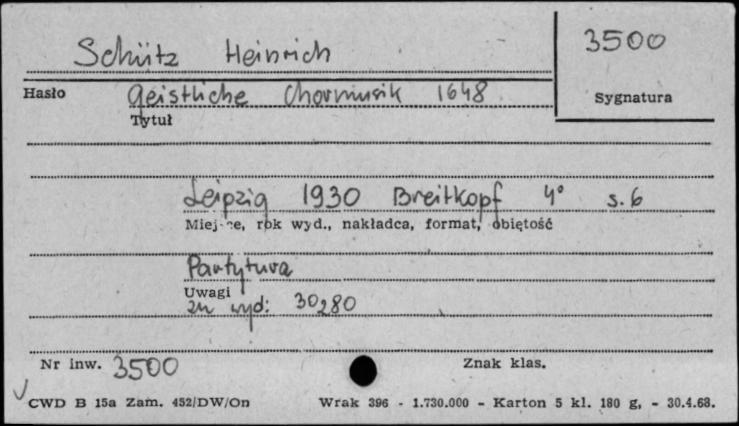 Schütz Heinrich
3500
Hasło
geistliche Chormusik 1648
Sygnatura
Tytuł
Leipzig 1930 Breitkopf 4° s. 6
Miejsce, rok wyd., nakładca, format, objętość
Partytura
Uwagi
zn wyd: 30280
Nr inw. 3500
Znak klas.
CWD B 15a Zam. 452/DW/On
Wrak 396 - 1.730.000 - Karton 5 kl. 180 g, - 30.4.68.